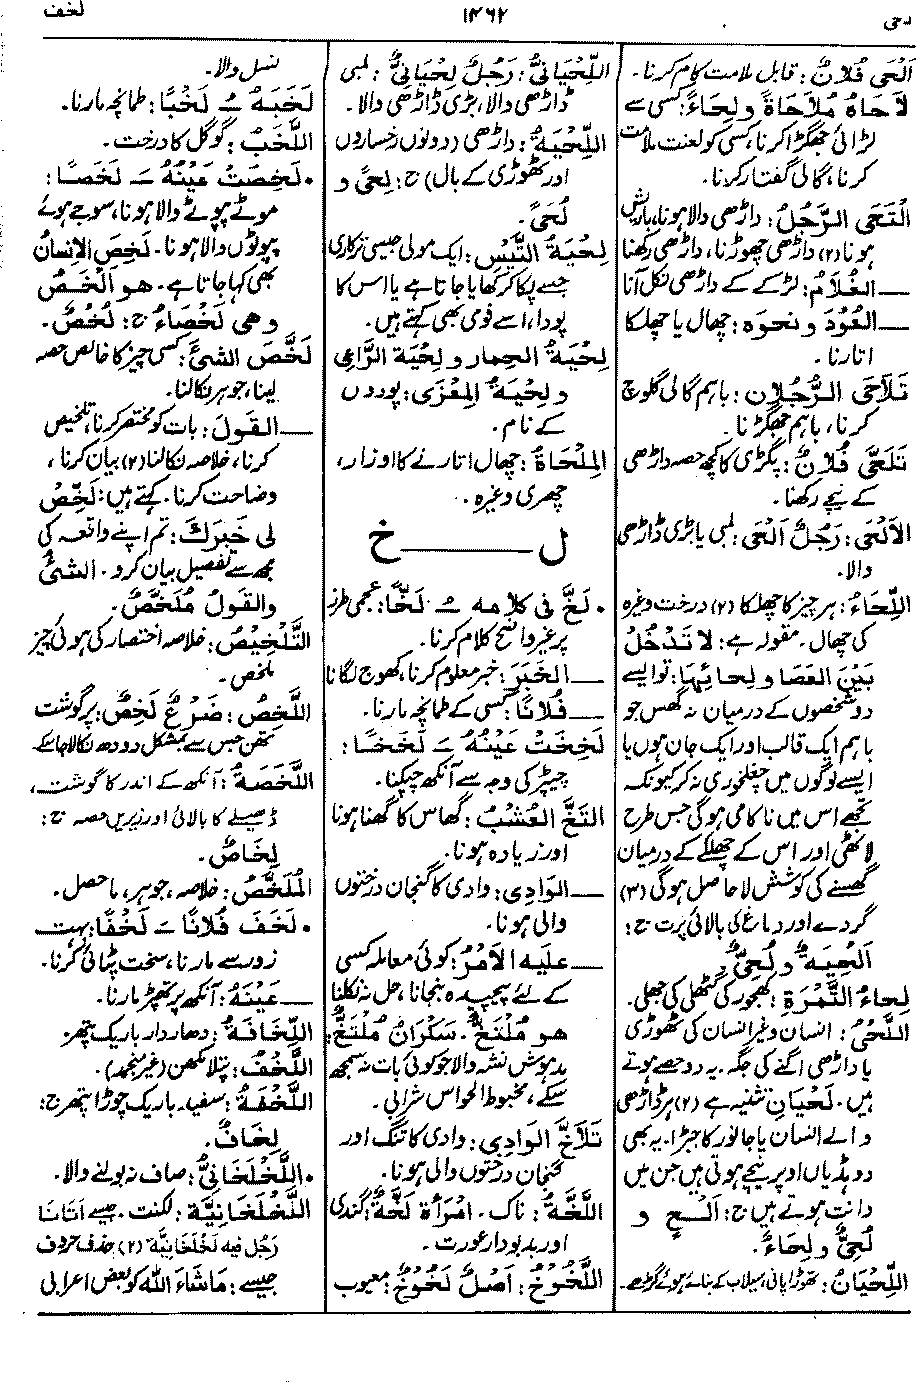 لحی
۱۴۶۲
لخف
اَلْحَى فُلَانٌ: قابل ملامت کام کرنا۔
لَاحَاهُ مُلَاحَاةً و لِحَاءً: کسی سے
لڑائی جھگڑا کرنا، کسی کو لعنت ملامت
کرنا، گالی گفتار کرنا۔
اِلْتَحَى الرَّجُلُ: داڑھی والا ہونا، باریش
ہونا (۲) داڑھی چھوڑنا، داڑھی رکھنا
ــــ الغُلَامُ: لڑکے کے داڑھی نکل آنا
ــــ العُوْدَ و نحوَه: چھال یا چھلکا
اتارنا۔
تَلَاحَى الرَّجُلَانِ: باہم گالی گلوچ
کرنا، باہم جھگڑنا۔
تَلَحَّى فُلَانٌ: پگڑی کا کچھ حصہ داڑھی
کے نیچے رکھنا۔
الأَلْحَى: رَجُلٌ اَلْحَى: لمبی یا بڑی داڑھی
والا۔
اللِّحَاءُ: ہر چیز کا چھلکا (۲) درخت وغیرہ
کی چھال۔ مقولہ ہے: لا تَدْخُلْ
بَيْنَ العَصَا و لِحَائِهَا: تو ایسے
دو شخصوں کے درمیان نہ گھس جو
باہم ایک قالب اور ایک جان ہوں یا
ایسے لوگوں میں چغلخوری نہ کر کیونکہ
تجھے اس میں ناکامی ہوگی جس طرح
لاٹھی اور اس کے چھلکے کے درمیان
گھسنے کی کوشش لا حاصل ہوگی (۳)
گردے اور دماغ کی بالائی پرت ج:
اَلْحِيَةٌ و لُحِيٌّ۔
لِحاءُ التَّمْرَةِ: کھجور کی گٹھلی کی جھلی۔
اللَّحْيُ: انسان و غیر انسان کی ٹھوڑی
یا داڑھی اگنے کی جگہ۔ یہ دو حصے ہوتے
ہیں۔ لَحْيَانِ تثنیہ ہے (۲) ہر داڑھی
والے انسان یا جانور کا جبڑا۔ یہ بھی
دو ہڈیاں اوپر نیچے ہوتی ہیں جن میں
دانت ہوتے ہیں ج: اَلْحٍ و
لُحِيٌّ و لِحَاءٌ۔
اللِّحْيَانُ: تھوڑا پانی، سیلاب کے بنائے ہوئے گڑھے۔
اللِّحْيَانِيُّ: رَجُلٌ لِحْيَانِيٌّ: لمبی
ڈاڑھی والا، بڑی ڈاڑھی والا۔
اللِّحْيَةُ: داڑھی (دونوں رخساروں
اور ٹھوڑی کے بال) ج: لِحًى و
لُحًى۔
لِحْيَةُ التَّيْسِ: ایک مولی جیسی ترکاری
جسے پکا کر کھایا جاتا ہے یا اس کا
پودا، اسے قوی بھی کہتے ہیں۔
لِحْيَةُ الحِمار و لِحْيَة الرَّاعِي
و لِحْيَةُ المِعْزَى: پودوں
کے نام۔
المِلْحَاةُ: چھال اتارنے کا اوزار،
چھری وغیرہ۔
ل ـــــــ خ
• لَخَّ فی کلامه ــُـ لَخًّا: عجمی طرز
پر غیر واضح کلام کرنا۔
ــــ الخَبَرَ: خبر معلوم کرنا، کھوج لگانا
ــــ فُلَانًا: کسی کے طمانچہ مارنا۔
لَخِخَتْ عَيْنُهُ ــَـ لَخَخًا:
چیپڑ کی وجہ سے آنکھ چپکنا۔
اِلْتَخَّ العُشْبُ: گھاس کا گھنا ہونا
اور زیادہ ہونا۔
ــــ الوَادِي: وادی کا گنجان درختوں
والی ہونا۔
ــــ علیه الأَمْرُ: کوئی معاملہ کسی
کے لئے پیچیدہ بنجانا، حل نہ نکلنا
هو مُلْتَخٌّ۔ سَكْرَانُ مُلْتَخٌّ:
مدہوش نشہ والا جو کوئی بات نہ سمجھ
سکے، مخبوط الحواس شرابی۔
تَلَاخَّ الوَادِي: وادی کا تنگ اور
گنجان درختوں والی ہونا۔
اللَّخَّةُ: ناک۔ امْرَأَةٌ لَخَّةٌ: گندی
اور بدبودار عورت۔
اللَّخُوْخُ: اَصْلٌ لَخُوْخٌ: معیوب
نسل والا۔
لَخَبَهُ ــُـ لَخْبًا: طمانچہ مارنا۔
اللَّخَبُ: گوگل کا درخت۔
• لَخِصَتْ عَيْنُهُ ــَـ لَخَصًا:
موٹے پپوٹے والا ہونا، سوجے ہوئے
پپوٹوں والا ہونا۔ لَخِصَ الإنسانُ
بھی کہا جاتا ہے۔ هو اَلْخَصُ
و هی لَخْصَاءُ ج: لُخْصٌ۔
لَخَّصَ الشئَ: کسی چیز کا خالص حصہ
لینا، جوہر نکالنا۔
ــــ القَولَ: بات کو مختصر کرنا، تلخیص
کرنا، خلاصہ نکالنا (۲) بیان کرنا،
وضاحت کرنا۔ کہتے ہیں: لَخِّصْ
لِی خَبَرَكَ: تم اپنے واقعہ کی
مجھ سے تفصیل بیان کرو۔ الشئُ
والقَولُ مُلَخَّصٌ۔
التَّلْخِيْصُ: خلاصہ اختصار کی ہوئی چیز
ملخص۔
اللَّخِصُ: ضَرْعٌ لَخِصٌ: پر گوشت
تھن جس سے بمشکل دودھ نکالا جا سکے
اللَّخَصَةُ: آنکھ کے اندر کا گوشت،
ڈھیلے کا بالائی اور زیریں حصہ ج:
لِخَاصٌ۔
المُلَخَّصُ: خلاصہ، جوہر، ماحصل۔
• لَخَفَ فُلَانًا ــَـ لَخْفًا: بہت
زور سے مارنا، سخت پٹائی کرنا۔
ــــ عَيْنَهُ: آنکھ پر تھپڑ مارنا۔
اللِّخَافَةُ: دھاردار باریک پتھر۔
اللَّخْفُ: پتلا مکھن (غیر منجمد)۔
اللَّخْفَةُ: سفید۔ باریک چوڑا پتھر ج:
لِخَافٌ۔
• اللَّخْلَخَانِيُّ: صاف نہ بولنے والا۔
اللَّخْلَخَانِيَّةُ: لکنت۔ جیسے اَتَانَا
رَجُل فیه لَخْلَخَانِيَّةٌ (۲) حذف حروف
جیسے: مَاشَاءَ اللهُ کو بعض اعرابی